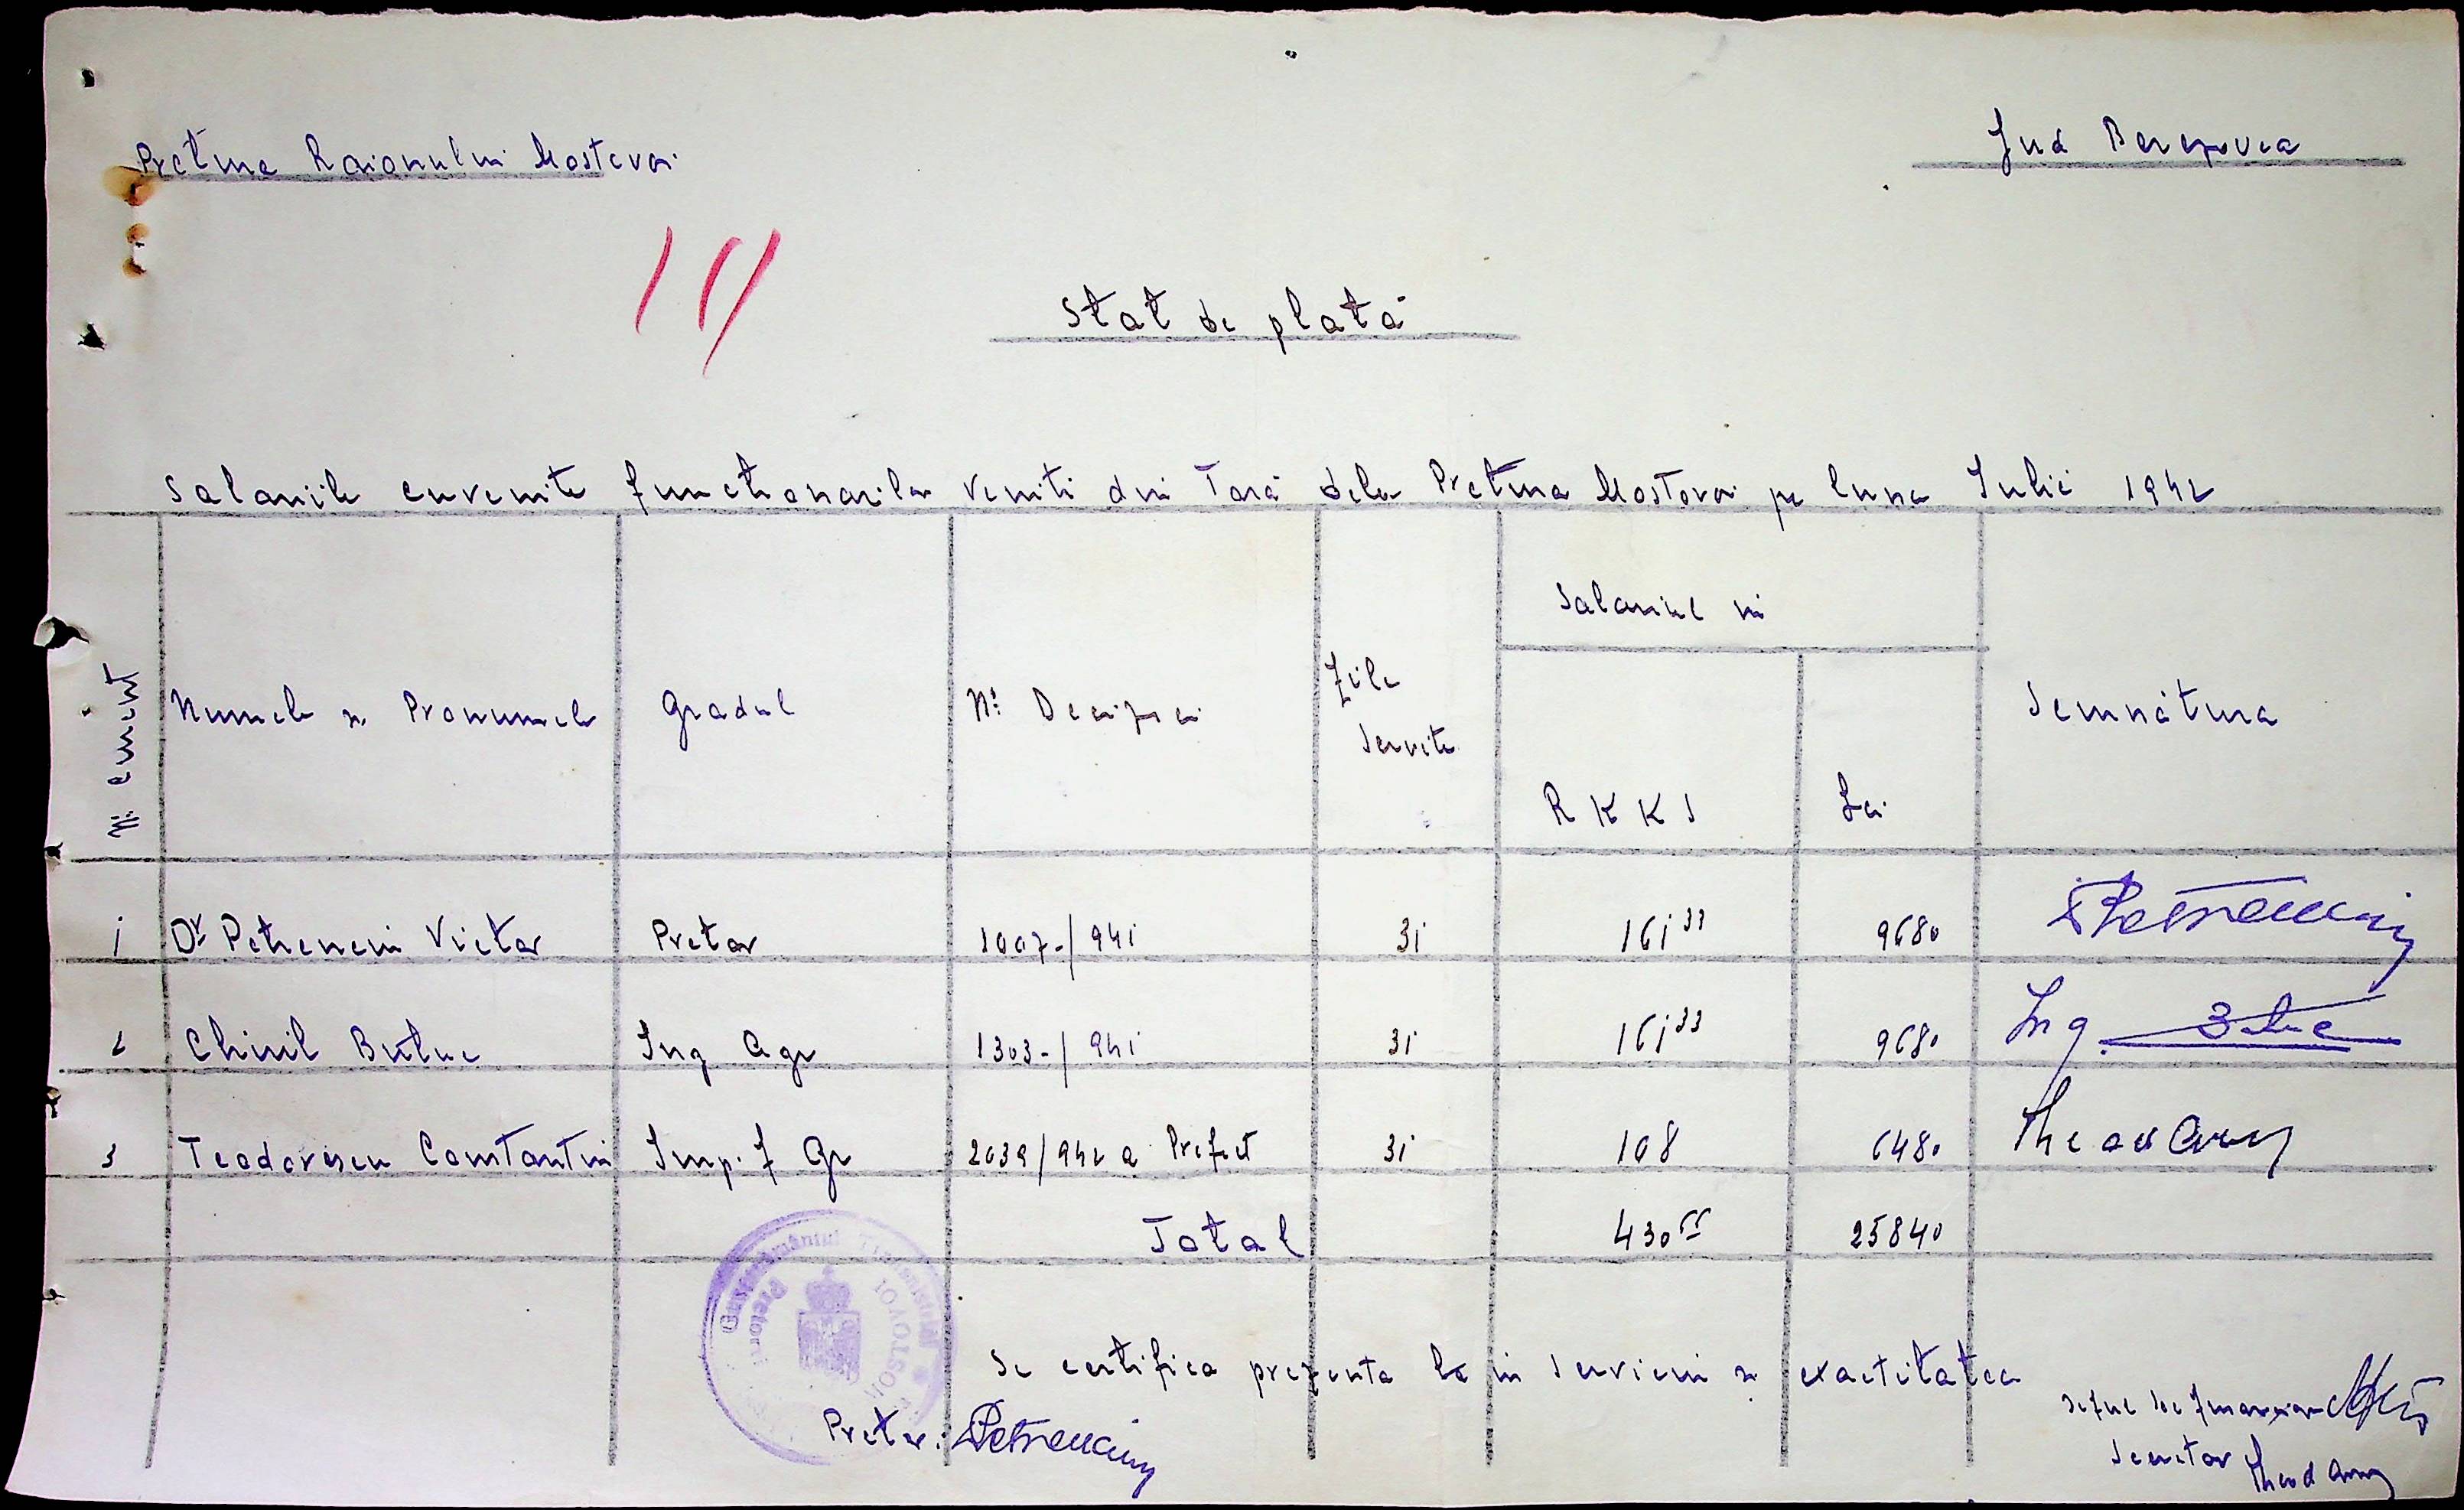 Pretura Raionului Mostovoi
Jud Berezovca
Stat de plată
Salariile cuvenite functionarilor veniti din Tară dela Pretura Mostovoi pe luna Iulie 1942
Nr. curent
Numele si Pronumele
Gradul
Nr. Deciziei
Zile servite
Salariul in
R K K S
Lei
Semnătura
1 Dr Petrenciu Victor Pretor 1007-/941 31 161 33 9680 Petrenciu
2 Chiril Butuc Ing Agr 1303-/941 31 161 33 9680 Ing. Butuc
3 Teodorescu Constantin Imp. f Gr 2039/942 a Prefect 31 108 6480
Total 430 66 25840
Guvernământul Transnistriei
Pretoria
MOSTOVOI
Se certifica prezenta la in serviciu si exactitatea
Pretor: Petrenciu
Seful Sec financiar
Secretar